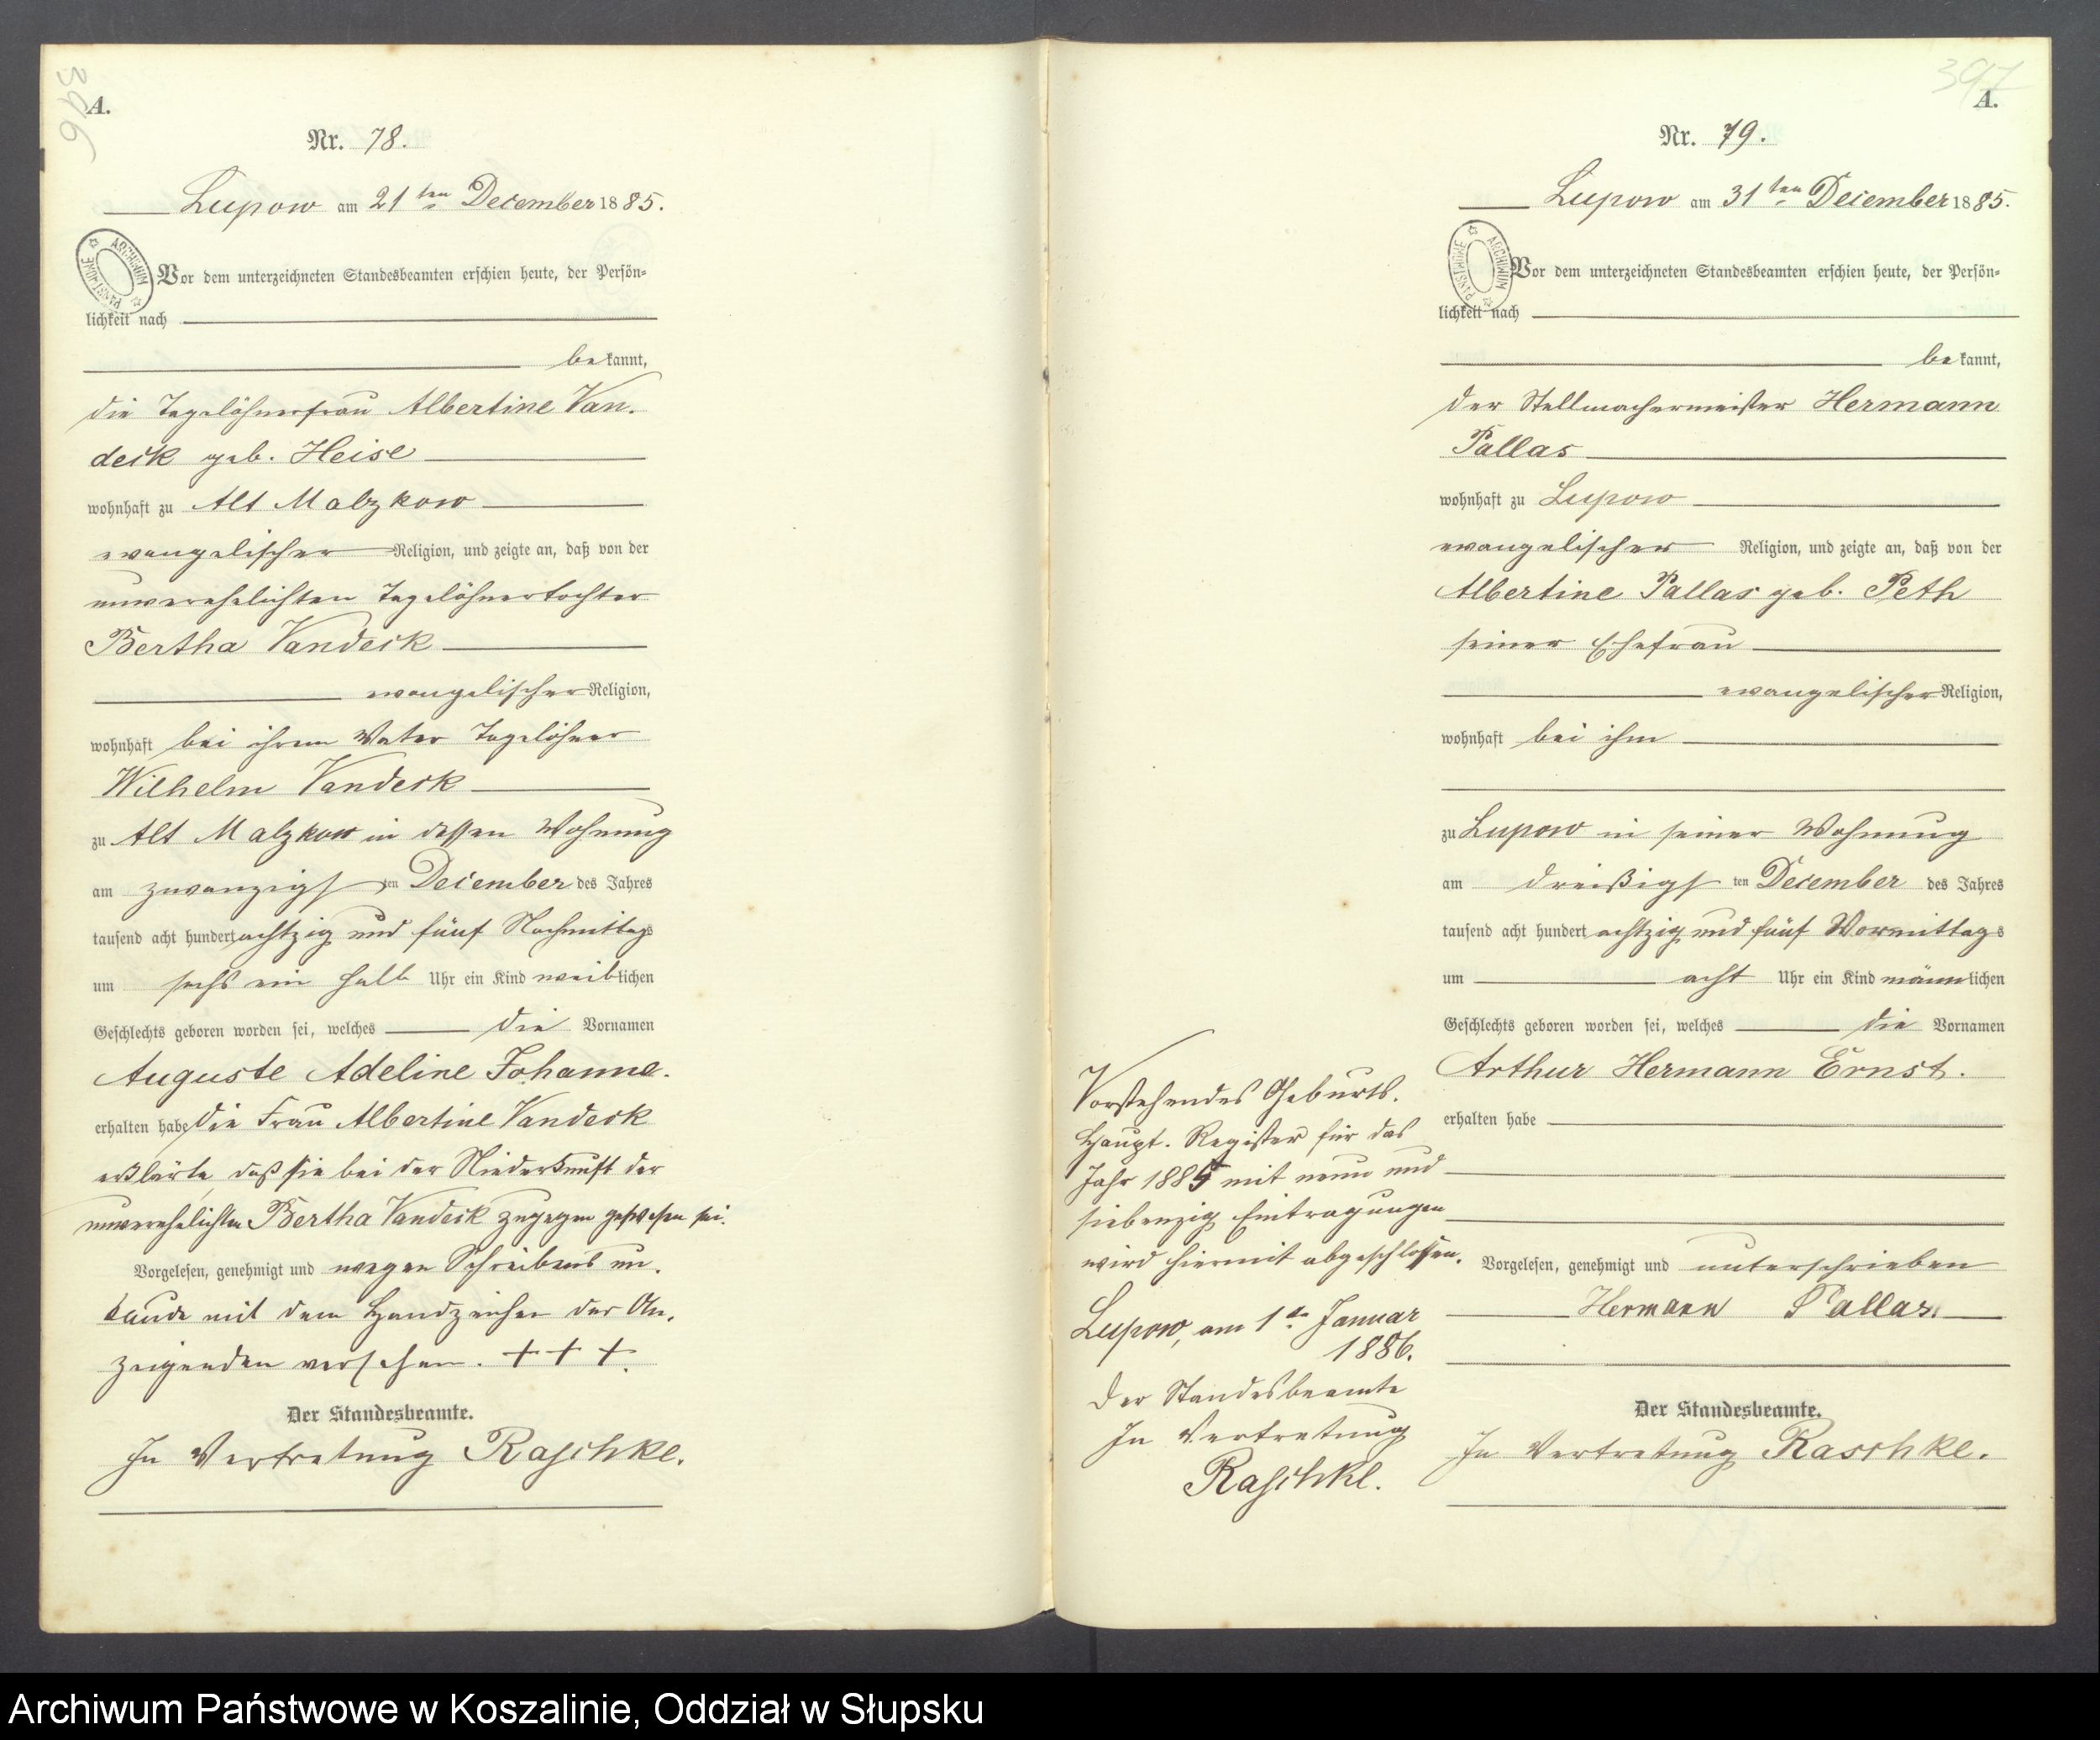 396
A.
Nr. 78.
Lupow am 21ten December 1885.
ARCHIWUM PAŃSTWOWE
Vor dem unterzeichneten Standesbeamten erschien heute, der Persön=
lichkeit nach
bekannt,
die Tagelöhnerfrau Albertine Van-
deck geb. Heise
wohnhaft zu Alt Malzkow
evangelischer Religion, und zeigte an, daß von der
unverehelichten Tagelöhnertochter
Bertha Vandeck
evangelischer Religion,
wohnhaft bei ihrem Vater Tagelöhner
Wilhelm Vandeck
zu Alt Malzkow in dessen Wohnung
am zwanzigsten December des Jahres
tausend acht hundert achtzig und fünf Nachmittags
um sechs ein halb Uhr ein Kind weiblichen
Geschlechts geboren worden sei, welches die Vornamen
Auguste Adeline Johanne.
erhalten habe Die Frau Albertine Vandeck
erklärte, daß sie bei der Niederkunft der
unverehelichten Bertha Vandeck zugegen gewesen sei.
Vorgelesen, genehmigt und wegen Schreibens un-
kunde mit dem Handzeichen der An-
zeigenden versehen. + + +.
Der Standesbeamte.
In Vertretung Raschke.
397
A.
Nr. 79.
Lupow am 31ten December 1885.
ARCHIWUM PAŃSTWOWE
Vor dem unterzeichneten Standesbeamten erschien heute, der Persön=
lichkeit nach
bekannt,
der Stellmachermeister Hermann
Pallas
wohnhaft zu Lupow
evangelischer Religion, und zeigte an, daß von der
Albertine Pallas geb. Peth
seiner Ehefrau
evangelischer Religion,
wohnhaft bei ihm
zu Lupow in seiner Wohnung
am dreißigsten December des Jahres
tausend acht hundert achtzig und fünf Vormittags
um acht Uhr ein Kind männlichen
Geschlechts geboren worden sei, welches die Vornamen
Arthur Hermann Ernst.
erhalten habe
Vorgelesen, genehmigt und unterschrieben
Hermann Pallas.
Der Standesbeamte.
In Vertretung Raschke.
Vorstehendes Geburts-
Haupt-Register für das
Jahr 1885 mit neun und
siebenzig Eintragungen
wird hiermit abgeschlossen.
Lupow, am 1ten Januar
1886.
Der Standesbeamte
In Vertretung
Raschke.
Archiwum Państwowe w Koszalinie, Oddział w Słupsku